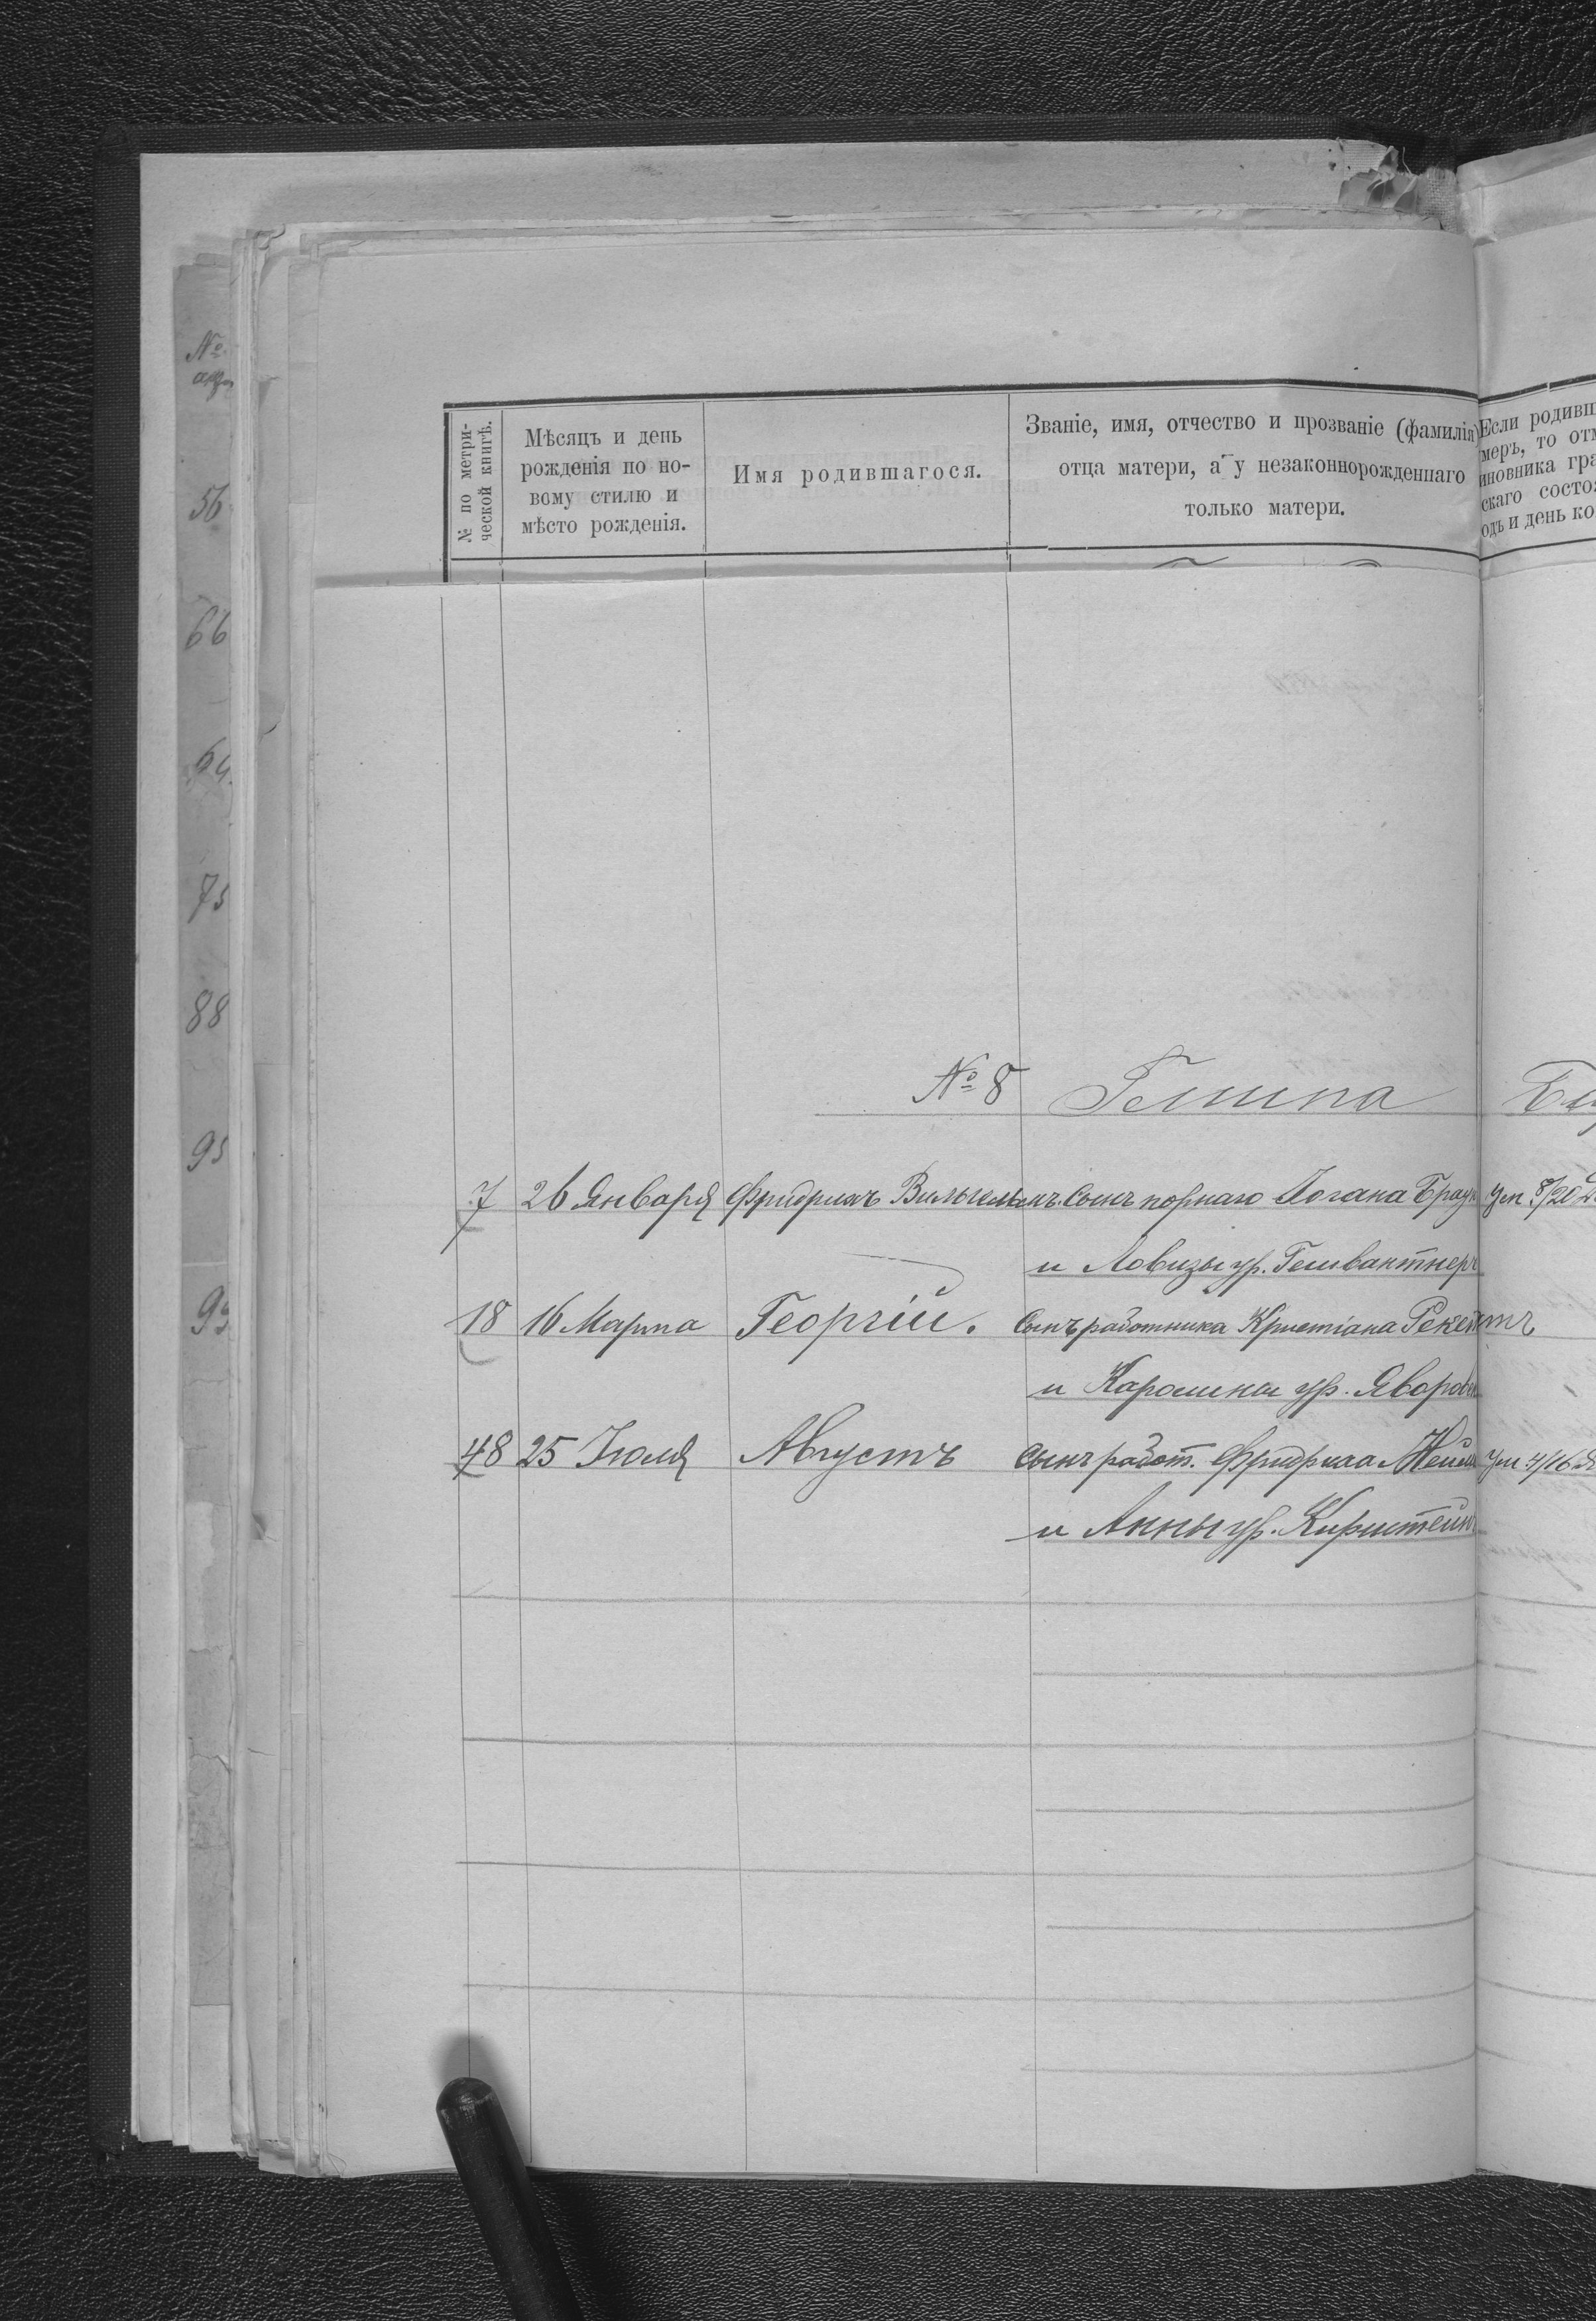 №
56
66
64
75
88
95
99
№ по метри-
ческой книгѣ.
Мѣсяцъ и день
рожденія по но-
вому стилю и
мѣсто рожденія.
Имя родившагося.
Званіе, имя, отчество и прозваніе (фамилія)
отца матери, а у незаконнорожденнаго
только матери.
Если родивш
меръ, то отм
иновника гра
скаго состоя
одъ и день ко
№ 8 Гмина
7 26 Января Фридрихъ Вильгельмъ. Сынъ портнаго Іогана Браун Ум 8/20
и Ловизы ур. Гешвантнеръ
18 16 Марта Георгій. Сынъ работника Кристіана Рекентъ
и Каролины ур. Яворовск
48 25 Іюля Августъ Сынъ работ. Фридриха Ум 4/16
и Анны ур. Кирштейнъ